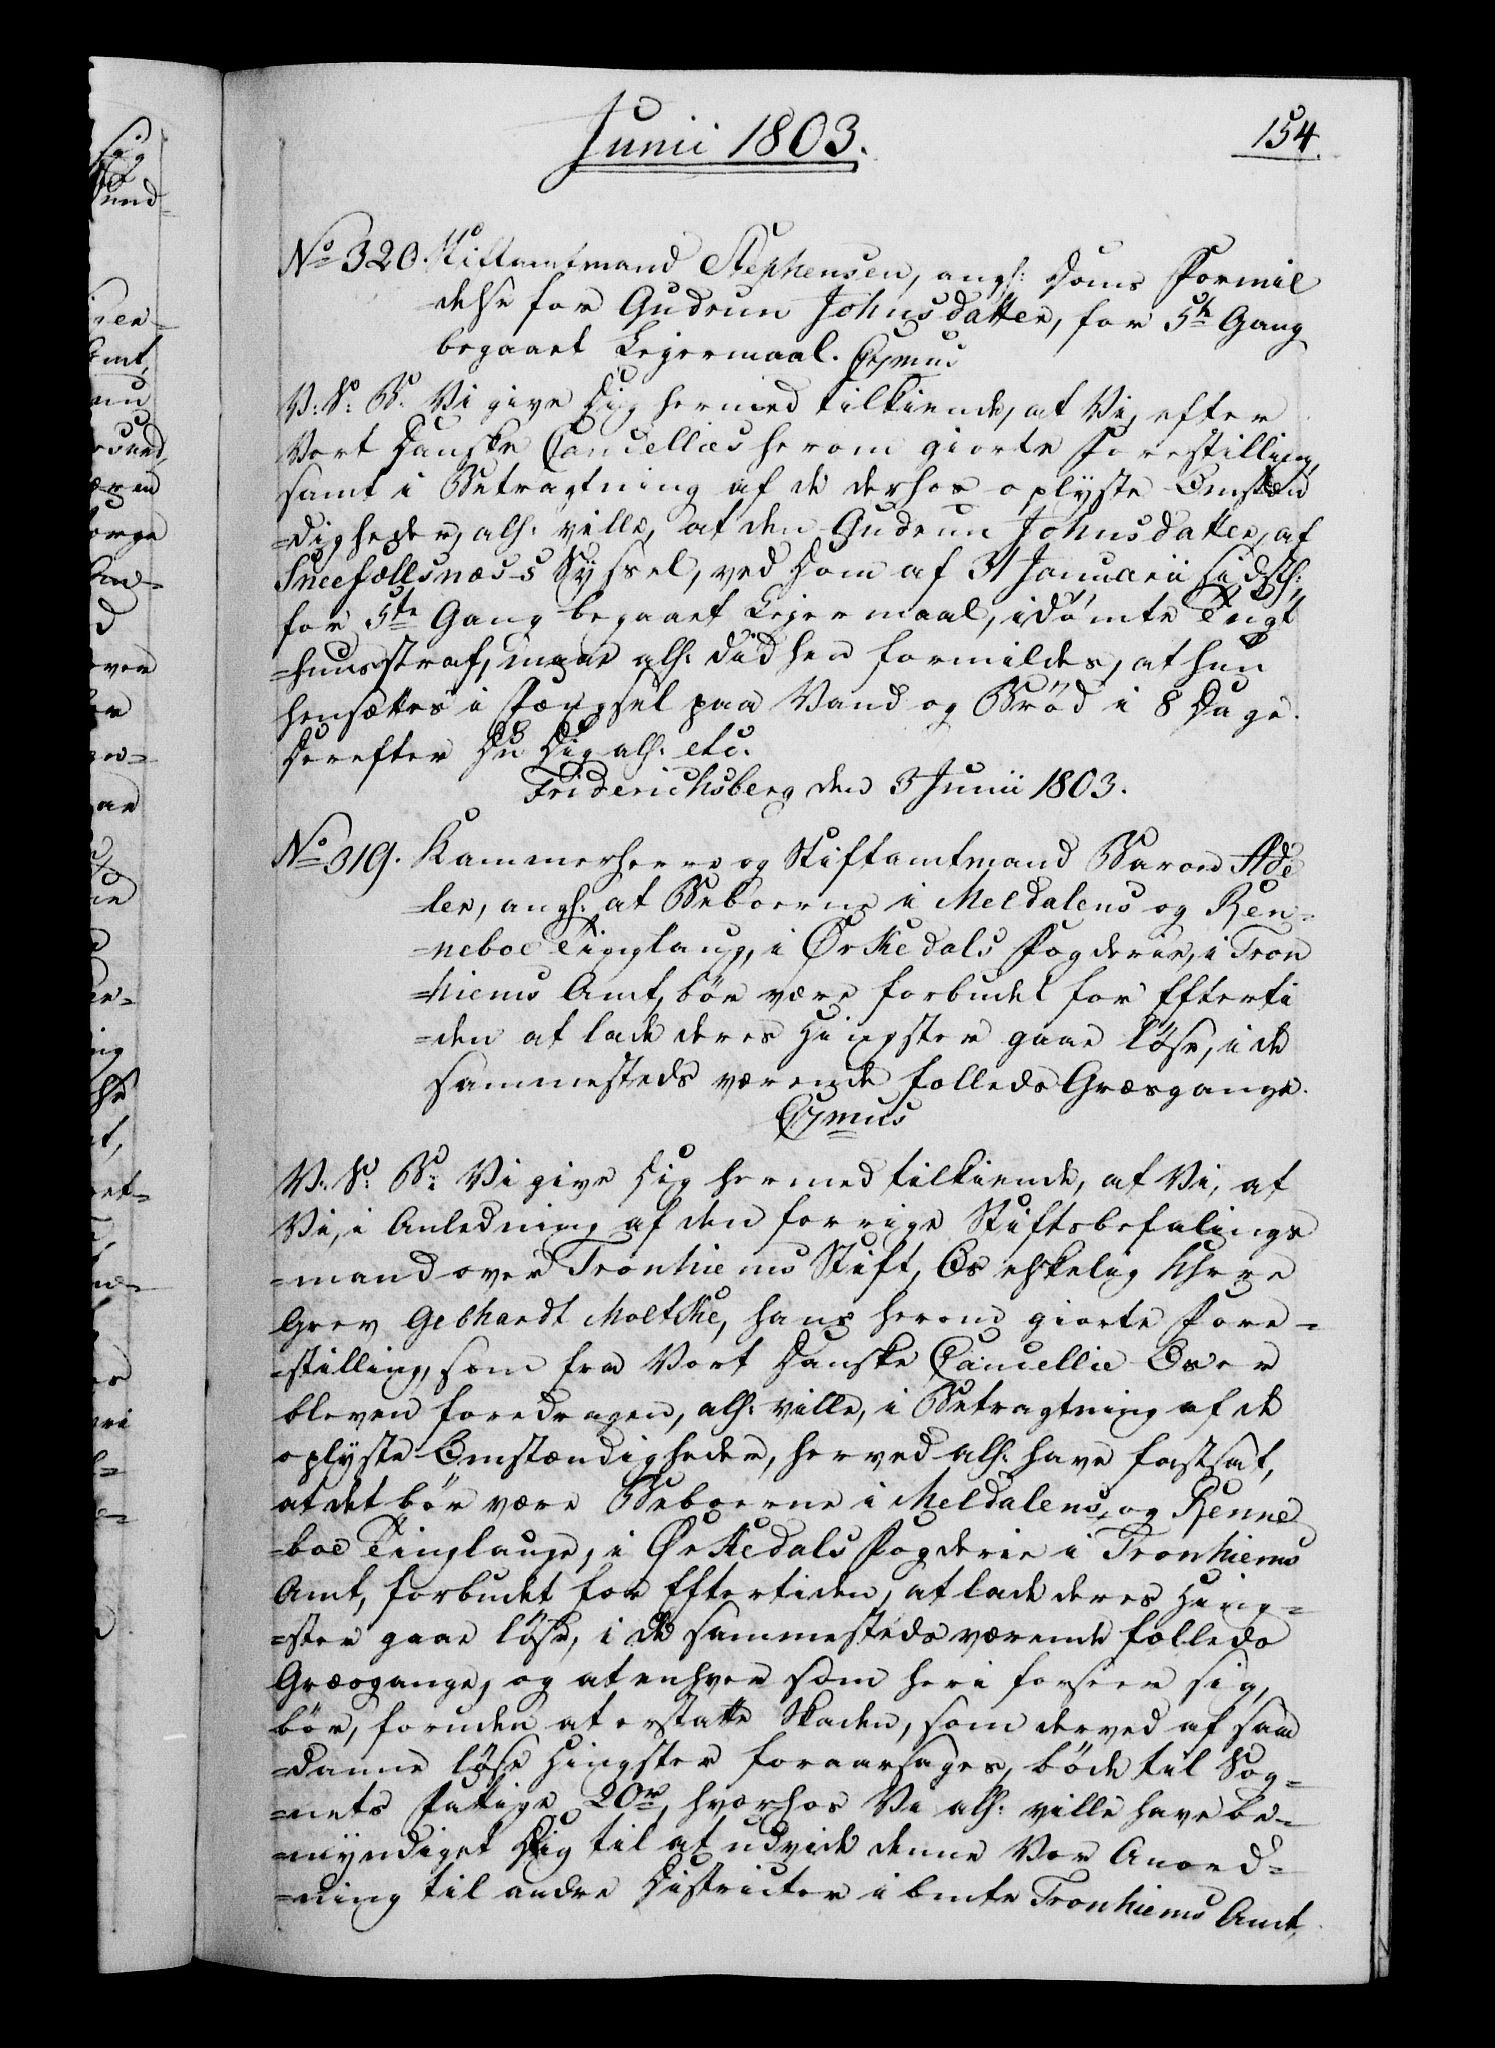 Junii 1803.
154.
No 320. Stiftamtmand Stephensen, angl: Doms Formil
delse for Gudrun Johnsdatter, for 5te Gang
begaaet Lejermaal. Cymus
V: S: B: Vi give Dig hermed tilkiende, at Vi, efter
Vort Danske Cancellies herom giorte Forestilling,
samt i Betragtning af de derhos oplyste Omstæn
=digheder, alh: ville, at den Gudrun Johnsdatter, af
Sneefællsnæss Syssel, ved Dom af 31 Januarii sidstl:
for 5te Gang begaaet Lejermaal, idømte Tugt
=huusstraf, maae alh: didhen formildes, at hun
hensættes i Fængsel paa Vand og Brød i 8 Dage.
Derefter Du Dig alh: etc.
Friderichsberg den 3 Junii 1803.
No 319. Kammerherre og Stiftamtmand Baron Ade
=ler, angl: at Beboerne i Meldalens og Ren=
=neboe Tinglaug, i Ørkedals Fogderie, i Tron
=hiems Amt, bør være forbudet for Efterti
=den at lade deres Hingster gaae løse, i de
sammesteds værende fælleds Græsgange.
Cymus
V: S: B: Vi give Dig hermed tilkiende, at Vi, at
Vi, i Anledning af den forrige Stiftsbefalings
=mand over Tronhiems Stift, Os elskelig Herre
Grev Gebhardt Moltke, hans herom giorte Fore=
=stilling, som fra Vort Danske Cancellie Os er
bleven foredragen, alh: ville, i Betragtning af de
oplyste Omstændigheder, herved alh: have fastsat,
at det bør være Beboerne i Meldalens, og Renne
=boe Tinglauge, i Ørkedals Fogderie i Tronhiems
Amt, forbudet for Eftertiden, at lade deres Hing=
=ster gaae løse, i de sammesteds værende fælleds
Græsgange, og at enhver som heri forseer sig,
bør, foruden at erstatte Skaden, som derved af saa
=danne løse Hingster foraarsages, bøde til Sog=
=nets Fattige 20 rd, hvorhos Vi alh: ville have be=
=myndiget Dig til at udvide denne Vor Anord=
=ning til andre Districter i bemte Tronhiems Amt,